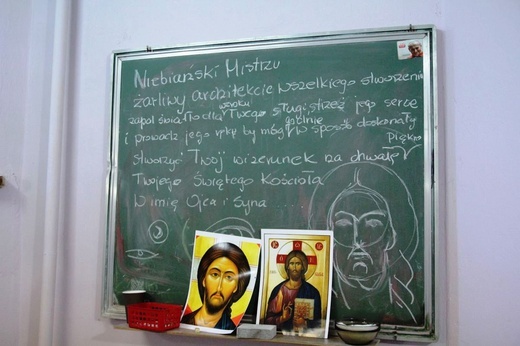 Niebiański Mistrzu
żarliwy architekcie wszelkiego stworzenia
zapal światło dla wzroku Twego sługi, strzeż jego serce
i prowadź jego rękę by mógł godnie w sposób doskonały
stworzyć Twój wizerunek na chwałę Piękno
Twojego Świętego Kościoła
W imię Ojca i Syna .......